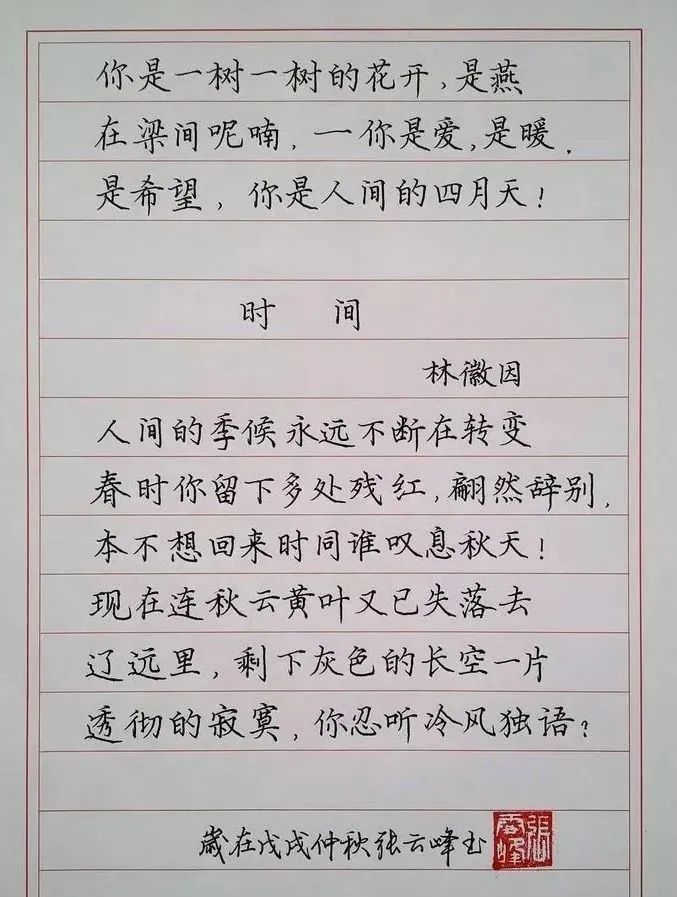 你是一树一树的花开,是燕
在梁间呢喃,一你是爱,是暖.
是希望,你是人间的四月天!
时间
林徽因
人间的季候永远不断在转变
春时你留下多处残红,翩然辞别,
本不想回来时同谁叹息秋天!
现在连秋云黄叶又已失落去
辽远里,剩下灰色的长空一片
透彻的寂寞,你忍听冷风独语?
歲在戊戌仲秋张云峰书
張云峰